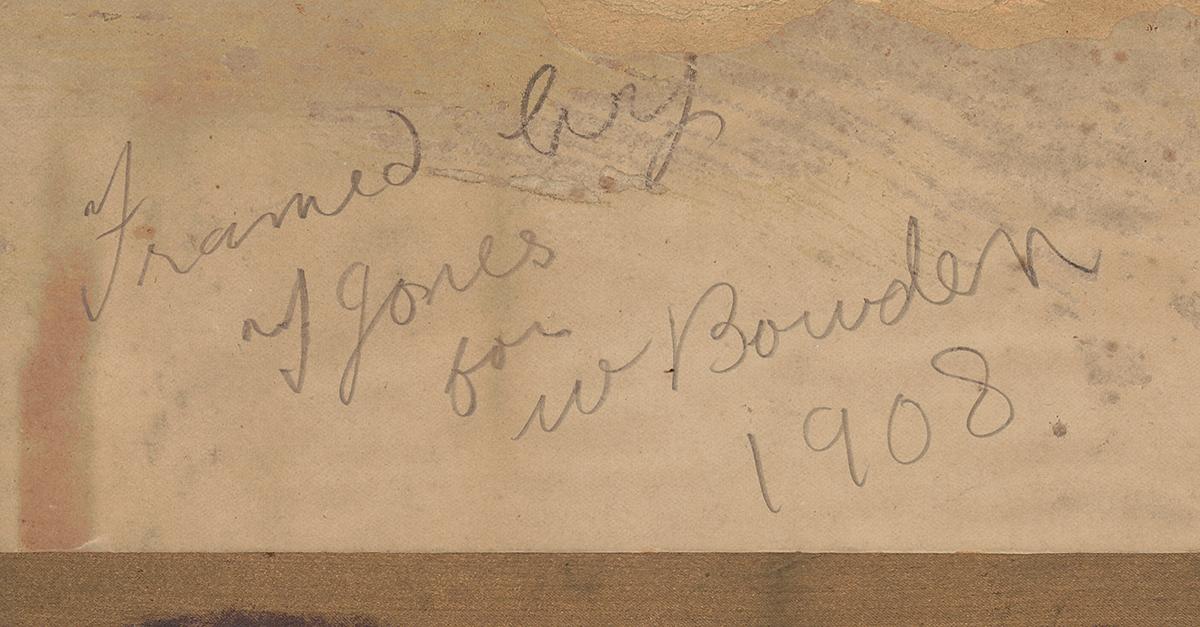 Framed by
J Jones
for
W Bowden
1908